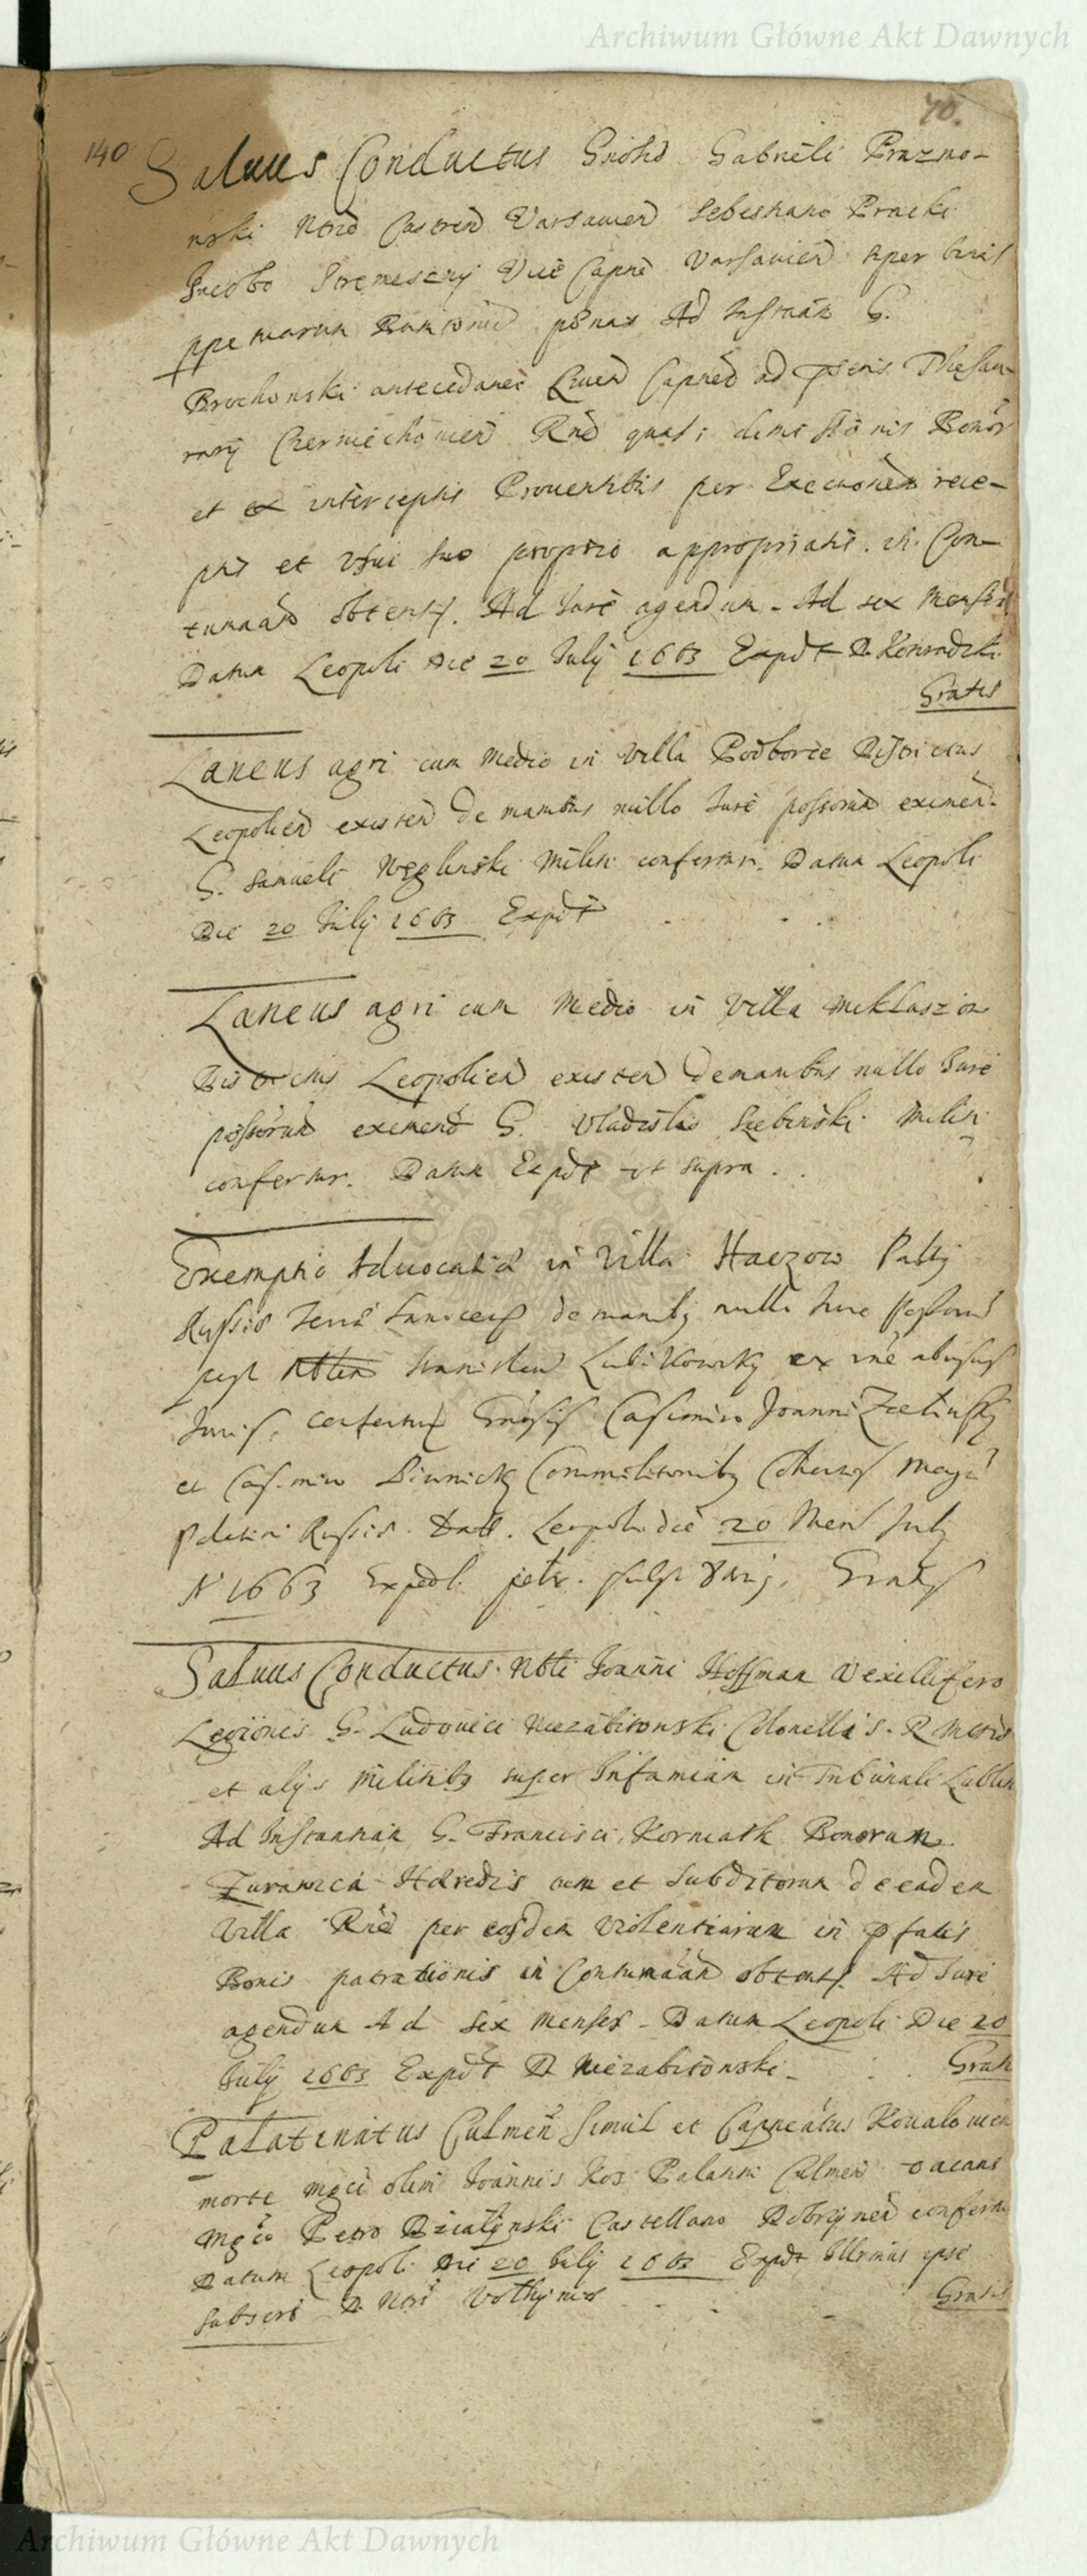 Archiwum Główne Akt Dawnych
70.
140 Salvus Conductus Gnoso Gabrieli Prazmo-
nski Castren Varsavien Sebestiano Pracki
Jacobo Vice Capne Varsavien super binas
ppetuarum Bannitionis pænas Ad Instnam G.
Brochowski antecedanei Capnei ad
Czerniechovien Rne quasi dimissionis Bonor
et ex interceptis Proventibus per Execuonem rece-
ptis et Usui suo proprio appropriatis. in Con-
tumaciam obtent. Ad Jure agendum. Ad sex menses
Datum Leopoli Die 20 July 1663 Expdt D. Konradzki.
Gratis
Laneus agri cum Medio in Villa Podborce Districtus
Leopolien existen De manibus nullo Jure possorum eximend.
G. Samueli Węglinski Militi confertur. Datum Leopoli
Die 20 July 1663 Expdt
Laneus agri cum Medio in Villa Miklaszow
Districtus Leopolien existen De manibus nullo Jure
possorum eximend G. Vladislao Militi
confertur. Datum Expdt ut supra.
Exemptio Advocatiæ in Villa Haczow Paltg
Russiæ Terra Sanocens de manibg nullo Jure possorum
Stanislai abusus
Juris, confertur Gnosis Casimiro Joanni Zielinski
et Casimiro Commilitonibg Cohortis Magci
Pdlatini Russiæ. Datt. Leopoli die 20 Men July
A 1663 Expedt. Gratis
Salvus Conductus. Nbli Joanni Hoffman Vexillifero
Legionis G. Ludovici Niezabitowski Colonelli S. R. Mctis
et alijs Militibg super Infamiam in Tribunali Lublin
Ad Instantiam G. Francisci Korniakt Bonorum
Zurawica Hæredis cum et Subditorum de eadem
Villa Rne per eosdem Violentiarum in pfatis
Bonis patrationis in Contumaciam obtent. Ad Jure
agendum Ad Sex Menses. Datum Leopoli Die 20
July 1663 Expdt D Niezabitowski. Gratis
Palatinatus Culmen Simul et Capneatus Kovalovien
morte Mgci olim Joannis Kos Palatini Culmen vacans
Mgco Petro Dzialynski Castellano Dobrzynen confertur
Datum Leopoli Die 20 July 1663 Expdt Illrmus ipse
Subscri D.
Gratis
Archiwum Główne Akt Dawnych